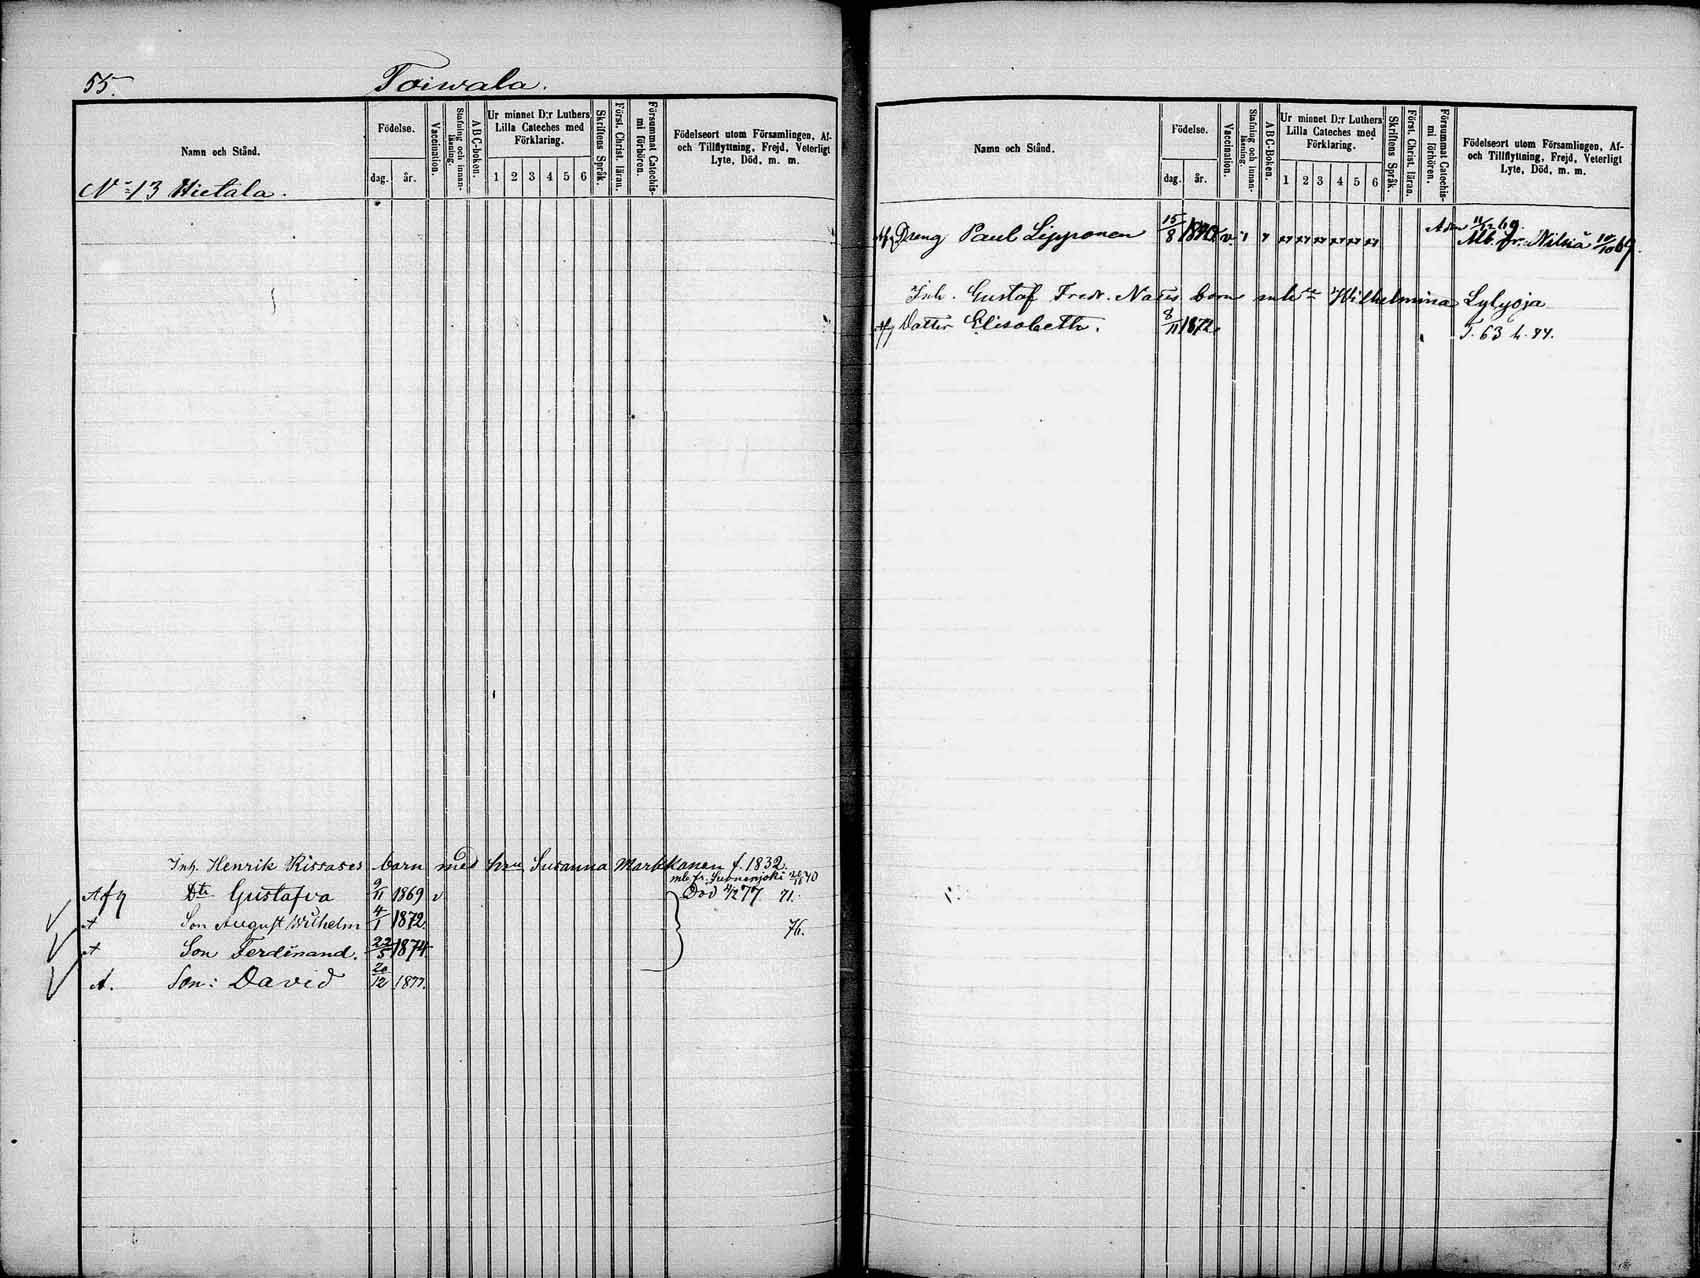 55.
Toiwala.
Namn och Stånd.
Födelse.
dag.
år.
Vaccination.
Stafning och innan-
läsning.
ABC-boken.
Ur minnet D:r Luthers
Lilla Cateches med
Förklaring.
1 2 3 4 5 6
Skriftens Språk.
Först. Christ. läran.
Försummat Catechis-
mi förhören.
Födelseort utom Församlingen, Af-
och Tillflyttning, Frejd, Veterligt
Lyte, Död, m. m.
No 13 Hietala.
Inh. Henrik Rissases barn med hru Susanna Markkanen f. 1832.
mb. fr. Suonenjoki
Afg Dtr Gustafva 9/11 1869 v Död 77 71.
+ Son August Wilhelm 4/1 1872. 76.
+ Son Ferdinand. 22/5 1874
A. Son: David 20/12 1877.
Namn och Stånd.
Födelse.
dag.
år.
Vaccination.
Stafning och innan-
läsning.
ABC-Boken.
Ur minnet D:r Luthers
Lilla Cateches med
Förklaring.
1 2 3 4 5 6
Skriftens Språk.
Först. Christ. läran.
Försummat Catechis-
mi förhören.
Födelseort utom Församlingen, Af-
och Tillflyttning, Frejd, Veterligt
Lyte, Död, m. m.
Afg Dreng Paul Lipponen 15/8 v 69.
Mb. fr. Nilsiä 10/10 69.
Inh. Gustaf Fredr. barn Wilhelmina Lylyoja
Afg Dotter Elisabeth. 8/11 1872. T. 63 h. 44.